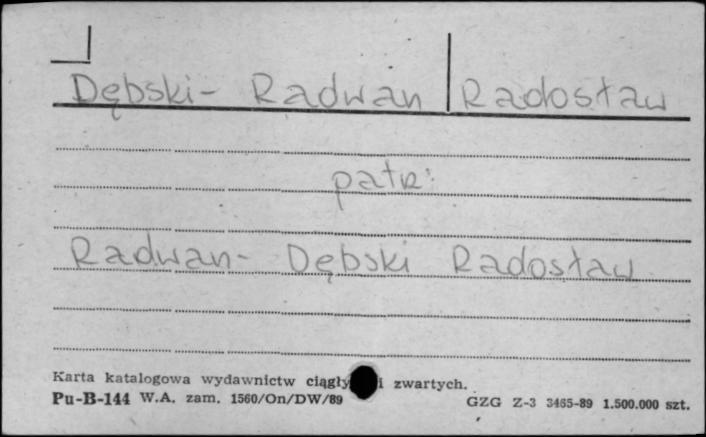 Dębski- Radwan Radosław
patrz:
Radwan- Dębski Radosław
Karta katalogowa wydawnictw ciągły i zwartych.
Pu-B-144 W.A. zam. 1560/On/DW/89 GZG Z-3 3465-89 1.500.000 szt.